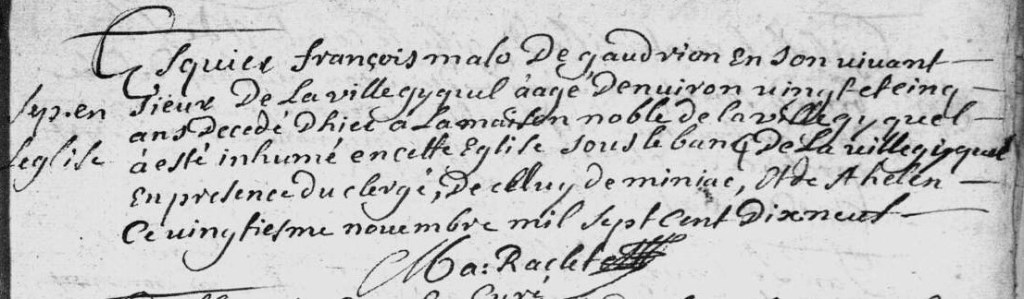 Esquier françois malo De gaudrion En son vivant
Sieur De La villegyquel âagé Denviron vingt et cinq
Sep. en
ans Decedé Dhier a La maison noble de la villegyquel
Leglise
a esté inhumé en cette Eglise sous le banq De La villegyquel
En presence du clergé, De celluy de miniac, Et de st helen
Ce vingtiesme novembre mil sept Cent Dix neuf
Ma: Raclet
Curé